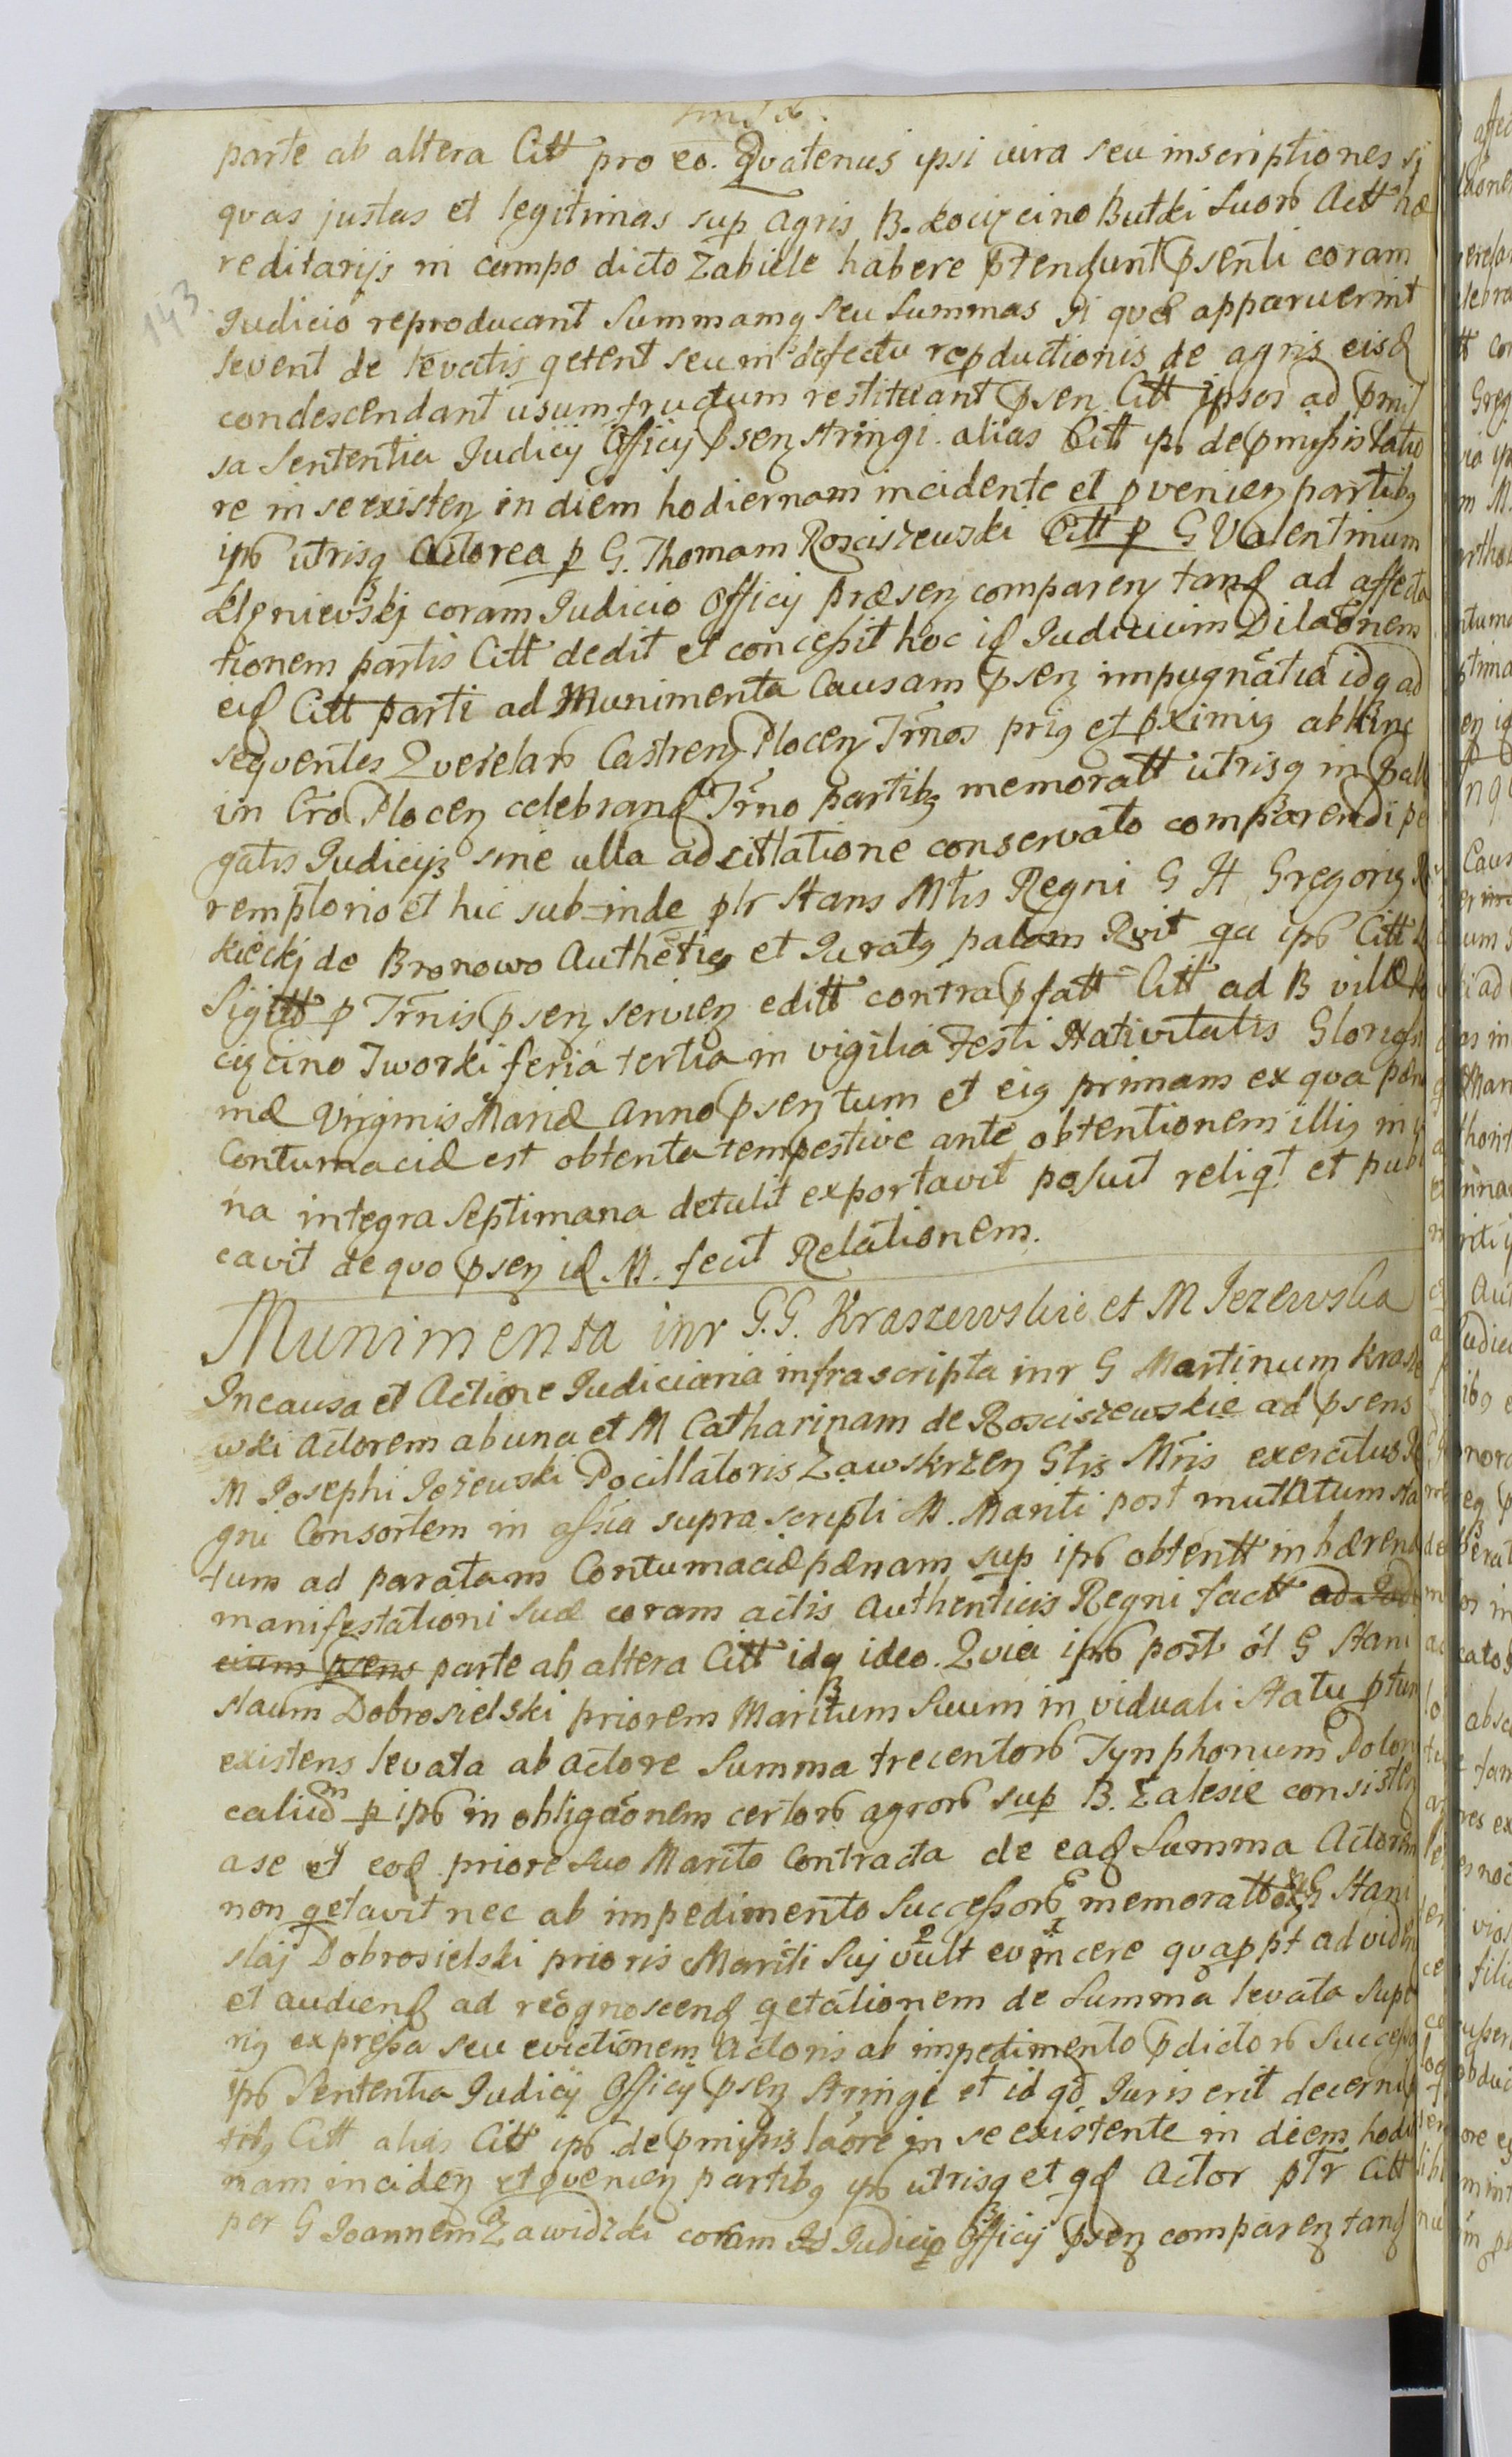 parte ab altera Citt pro eo. Qvatenus ipsi iura seu inscriptiones si
qvas justas et legitimas sup agris B. Kocięcino Butki suorȣ Actt hæ
reditarijs in campo dicto Zabiele habere ꝑtendunt ꝑsenti coram
Judicio reproducant Summamq seu Summas si quæ apparuerint
levent de levatis qetent seu in defectu repductionis de agris eisd
condescendant usumfructum restituant ꝑsen Citt ipsos ad ꝑmis
sa Sententia Judicij Officij ꝑsenz stringi. alias Citt ipȣ de ꝑmissis latio
re in se existenz in diem hodiernam incidente et pvenienz partibꝫ
ipȣ utrisq Actorea p G. Thomam Rosciszewski Citt p G Valentinum
Klgniewskj coram Judicio Officij præsenz comparenz tand ad affecta
tionem partis Citt dedit et concessit hoc id Judicium Dilaonem
eid Citt parti ad Munimenta Causam ꝑsenz impugnātia idq ad
seqventes Qverelarȣ Castrenz Plocenz Trnos prig et pximiꝫ abhinc
in Cro Plocenz celebrand Trno partibꝫ memoratt utrisq in Pall
gatis Judicijs sine ulla adcitatione conservato comparendi pe
remptorio et hic sub-inde ptr stans Mtis Regni G H Gregoriꝫ R
kieckj de Bronowo Authēticꝫ et Juratꝫ palam Rvit qa ipȣ Citt L
Sigitt p Trnis ꝑsenz servienz editt contra ꝑfatt Citt ad B villæ Ko
cięcino Tworki feria tertia in vigilia Festi Nativitatis Gloriosi
mæ Virginis Mariæ Anno ꝑsenz tum et eiꝫ primam ex qva pæna
Contumaciæ est obtenta tempestive ante obtentionem illiꝫ in v
na integra Septimana detulit exportavit posuit reliqt et publ
cavit de quo ꝑsenz id M. fecit Relationem.
Munimenta inr G.G. Kraszewskie et M Jezewska
In causa et Actione Judiciaria infrascripta inr G Martinum Krasze
wski Actorem ab una et M Catharinam de Rosciszewskie ad ꝑsens
M Josephi Jeżewski Pocillatoris Zawskrzenz Gtis Mtris exercitus Re
gni Consortem in assia supra scripti M. Mariti post mutatum sta
tum ad paratam Contumaciæ pænam sup ipȣ obtentt inhærend
manifestationi suæ coram actis Authenticis Regni factt ad Judi
cium ꝑsens parte ab altera Citt idq ideo. Qvia ipȣ post ol G Stani
slaum Dobrosielski priorem Maritum Suum in viduali statu ptun
existens levata ab actore Summa trecentorȣ Tynphonum Polon
calium p ipȣ in obligāonem certorȣ agrorȣ sup B. Zalesie consistenz
a se et eod priore suo Marito Contracta de ead Summa Actorem
non qetavit nec ab impedimento Successorȣ memoratt G Stani
slaj Dobrosielski prioris Mariti Sui vult evincere qvappt ad vidend
et audiend ad recognoscend qetationem de Summa levata Supe
riꝫ expressa seu evictionem Actoris ab impedimento ꝑdictorȣ Success
ipȣ Sententia Judicij Officij ꝑsenz stringi et id qd Juris erit decerni p
tibꝫ Citt alias Citt ipȣ de ꝑmissis laore in se existente in diem hodi
nam incidenz et pvenienz partibꝫ ipȣ utrisq et qd Actor ptr Citt
per G Joannem Zawidzki coram Judicio Officij ꝑsenz comparenz tand